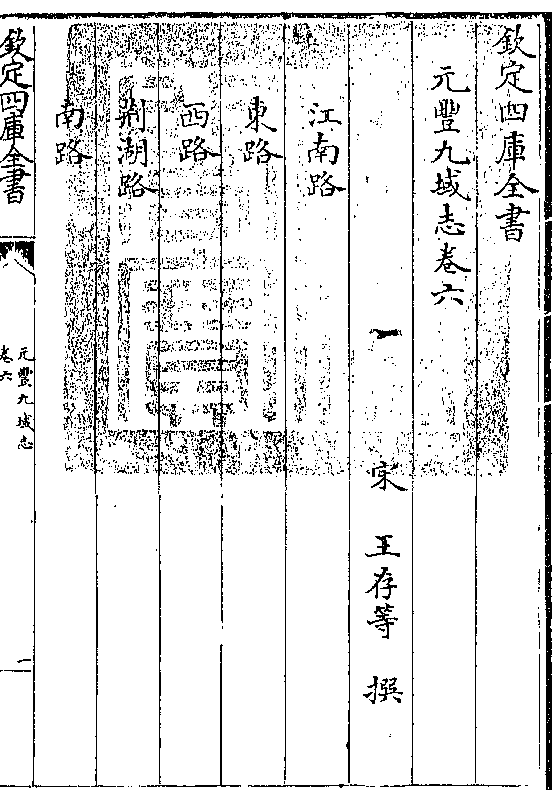 欽定四庫全書
元豐九域志卷六
宋　王存等　撰
江南路
東路
西路
荆湖路
南路
欽定四庫全書
元豐九域志
卷六
一